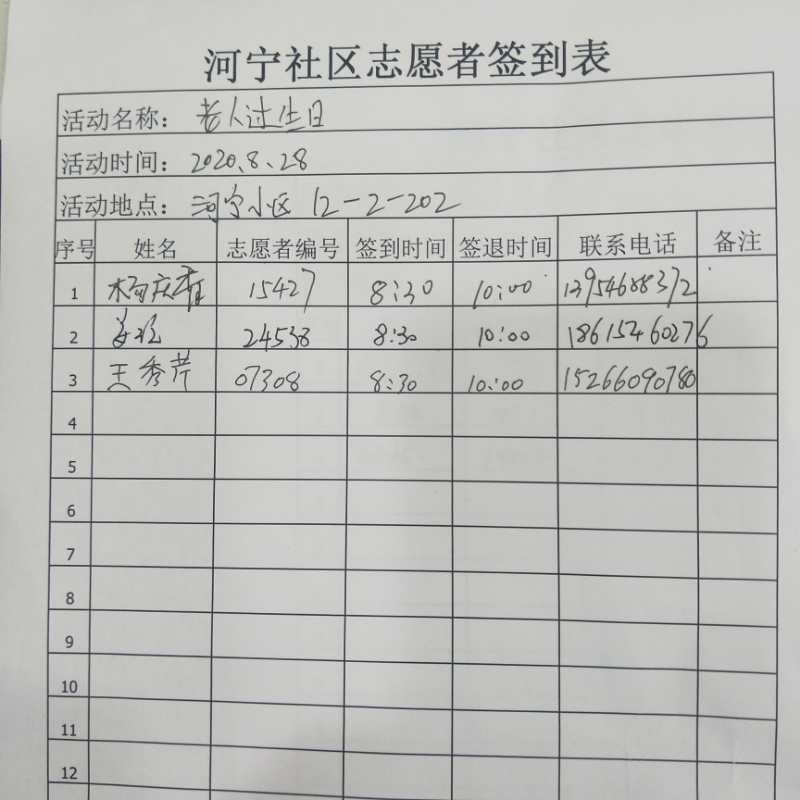 河宁社区志愿者签到表
活动名称： 老人过生日
活动时间： 2020.8.28
活动地点： 河宁小区 12-2-202
序号 姓名 志愿者编号 签到时间 签退时间 联系电话 备注
1 15427 8:30 10:00 13954688372
2 24538 8:30 10:00 18615460276
3 王秀芹 07308 8:30 10:00 15266090780
4
5
6
7
8
9
10
11
12